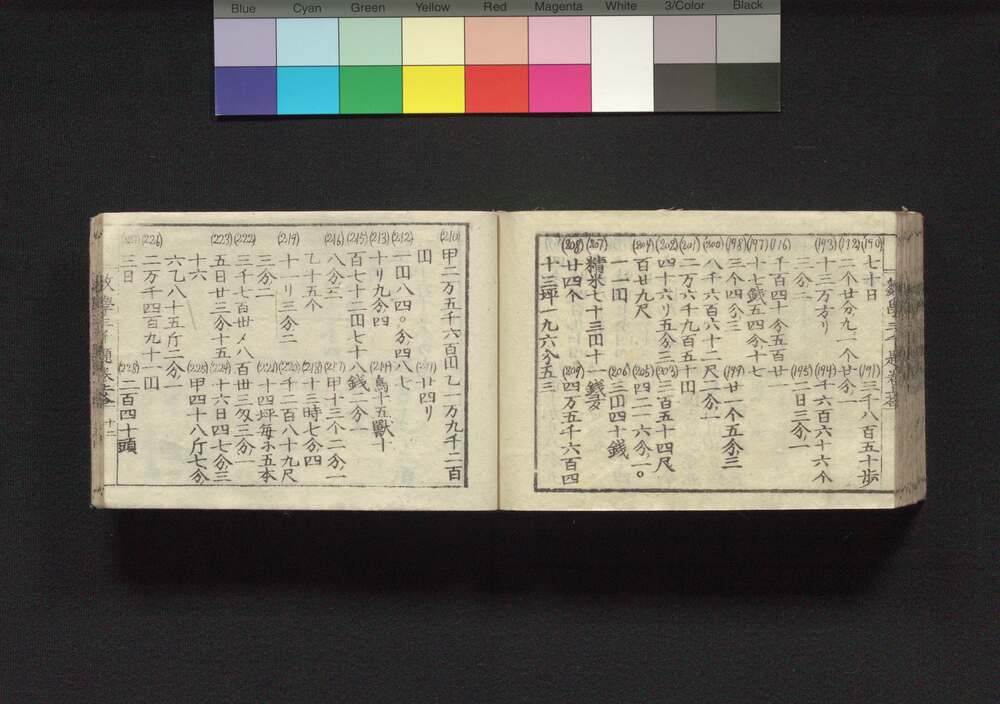 Blue Cyan Green Yellow Red Magenta White 3/Color Black
(190) 七十日 (191) 三千八百五十歩
(192) 二个廿分九, 一个廿分一
(193) 十三万方リ (194) 千六百六十六个
三分二 (195) 二日三分一
千百四十分五百廿一
(197) 十七銭五四分十七
(198) 三个四分三 (199) 廿一个五分三
(200) 八千六百六十二尺二分一
(201) 二万六千九百五十田
(202) 四十六リ五分三 (203) 三百五十四尺
(204) 百廿九尺 (205) 四二一六分二一〇
一一田 (206) 三田四十銭
(207) 精米七十三田十一銭
(208) 廿四个 (209) 四万五千六百四
十三坪一九六分五三
(210) 甲二万五千六百田乙一万九千二百
田 (211) 廿四リ
(212) 一田八四〇分四八七
(213) 十リ九分四 (214) 鳥十五獸十
(215) 百七十二田七十八銭二分一
(216) 八分三 (217) 甲十三个二分一
乙十五个 (218) 十三時七分四
(219) 十一リ三分二 (220) 千二百八十九尺
三分二 (221) 十四坪毎亦五本
(222) 三千七百卅〆八百卅三匁三分一
(223) 五日廿三分十五 (224) 十六日四七分三
十六 (225) 甲四十八斤七分
六乙八十五斤二分一
(226) 二万千四百九十一田
(227) 三日 (228) 二百四十頭